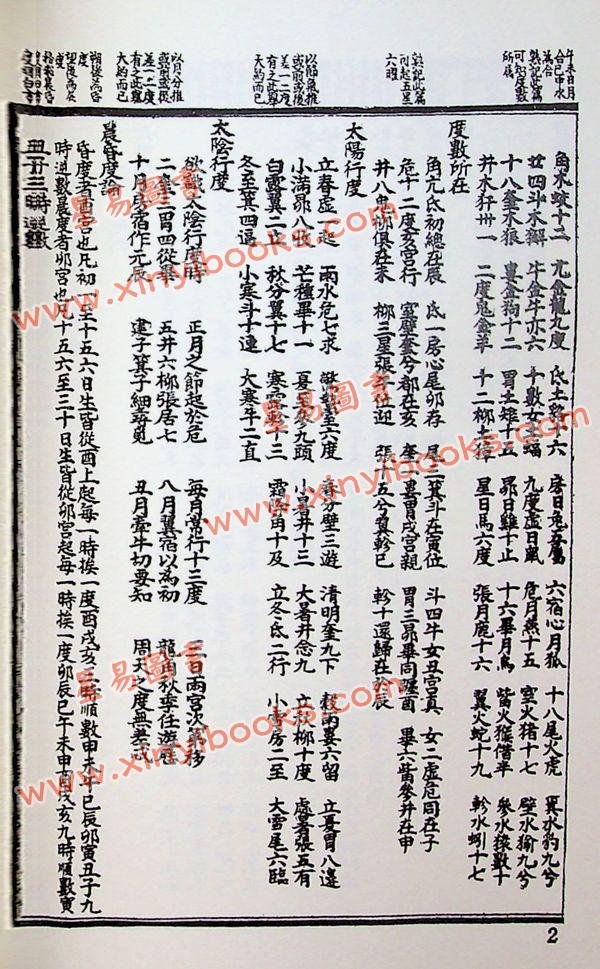 午未日月
合巳申水
為合
熟記此篇
可知度數
所屬
熟記此篇
可起五星
六曜
以節氣推
或前或後
差一二度
有之此舉
大約而已
以月分推
或前或後
差一二度
有之此舉
大約而已
朔後為昏
度
望後為晨
度
角木蛟十二 亢金龍九度 氐土貉十六 房日兔五屬 六宿心月狐 十八尾火虎 箕水豹九兮
廿四斗木獬 牛金牛亦六 十數女土蝠 九度虛日鼠 危月燕十五 室火猪十七 壁水㺄九兮
十八奎木狼 婁金狗十二 胃土雉十五 昴日雞十止 十六畢月烏 觜火猴偕半 參水猿數十
井木犴卅一 二度鬼金羊 十二柳土獐 星日馬六度 張月鹿十六 翼火蛇十九 軫水蚓十七
度數所在
角亢氐初總在辰 氐一房心尾卯存 尾三箕斗在寅位 斗四牛女丑宮真 女二虛危同在子
危十二度亥宮行 室壁奎兮都在亥 奎二婁胃戌宮親 胃三昴畢同躔酉 畢六觜參井在申
井八鬼柳俱在未 柳三星張午位迎 張十五兮翼軫巳 軫十還歸在於辰
太陽行度
立春虛一起 雨水危七求 驚蟄室六度 春分壁三遊 清明奎九下 穀雨婁六留 立夏胃八邊
小滿昴八收 芒種畢十一 夏至參九頭 小暑井十三 大暑井念九 立秋柳十度 處暑張五有
白露翼二止 秋分翼十七 寒露軫十三 霜降角十及 立冬氐二行 小雪房二至 大雪尾六臨
冬至箕四逼 小寒斗十連 大寒牛二直
太陰行度
欲識太陰行度時 正月之節起於危 每月常行十三度 三日兩宮次第移
二奎三胃四從畢 五井六柳張居七 八月翼宿以為初 龍角秋季任遊歷
十月房宿作元辰 建子箕子細尋覓 丑月牽牛切要知 周天之度無差忒
晨昏度論
昏度者酉宮也凡初一至十五六日生皆從酉上起每一時挨一度酉戌亥三時順數申未午巳辰卯寅丑子九
時逆數晨度者卯宮也凡十五六至三十日生皆從卯宮起每一時挨一度卯辰巳午未申酉戌亥九時順數寅
丑子三時逆數
2
星易圖書
www.xinyibooks.com
星易圖書
www.xinyibooks.com
星易圖書
www.xinyibooks.com